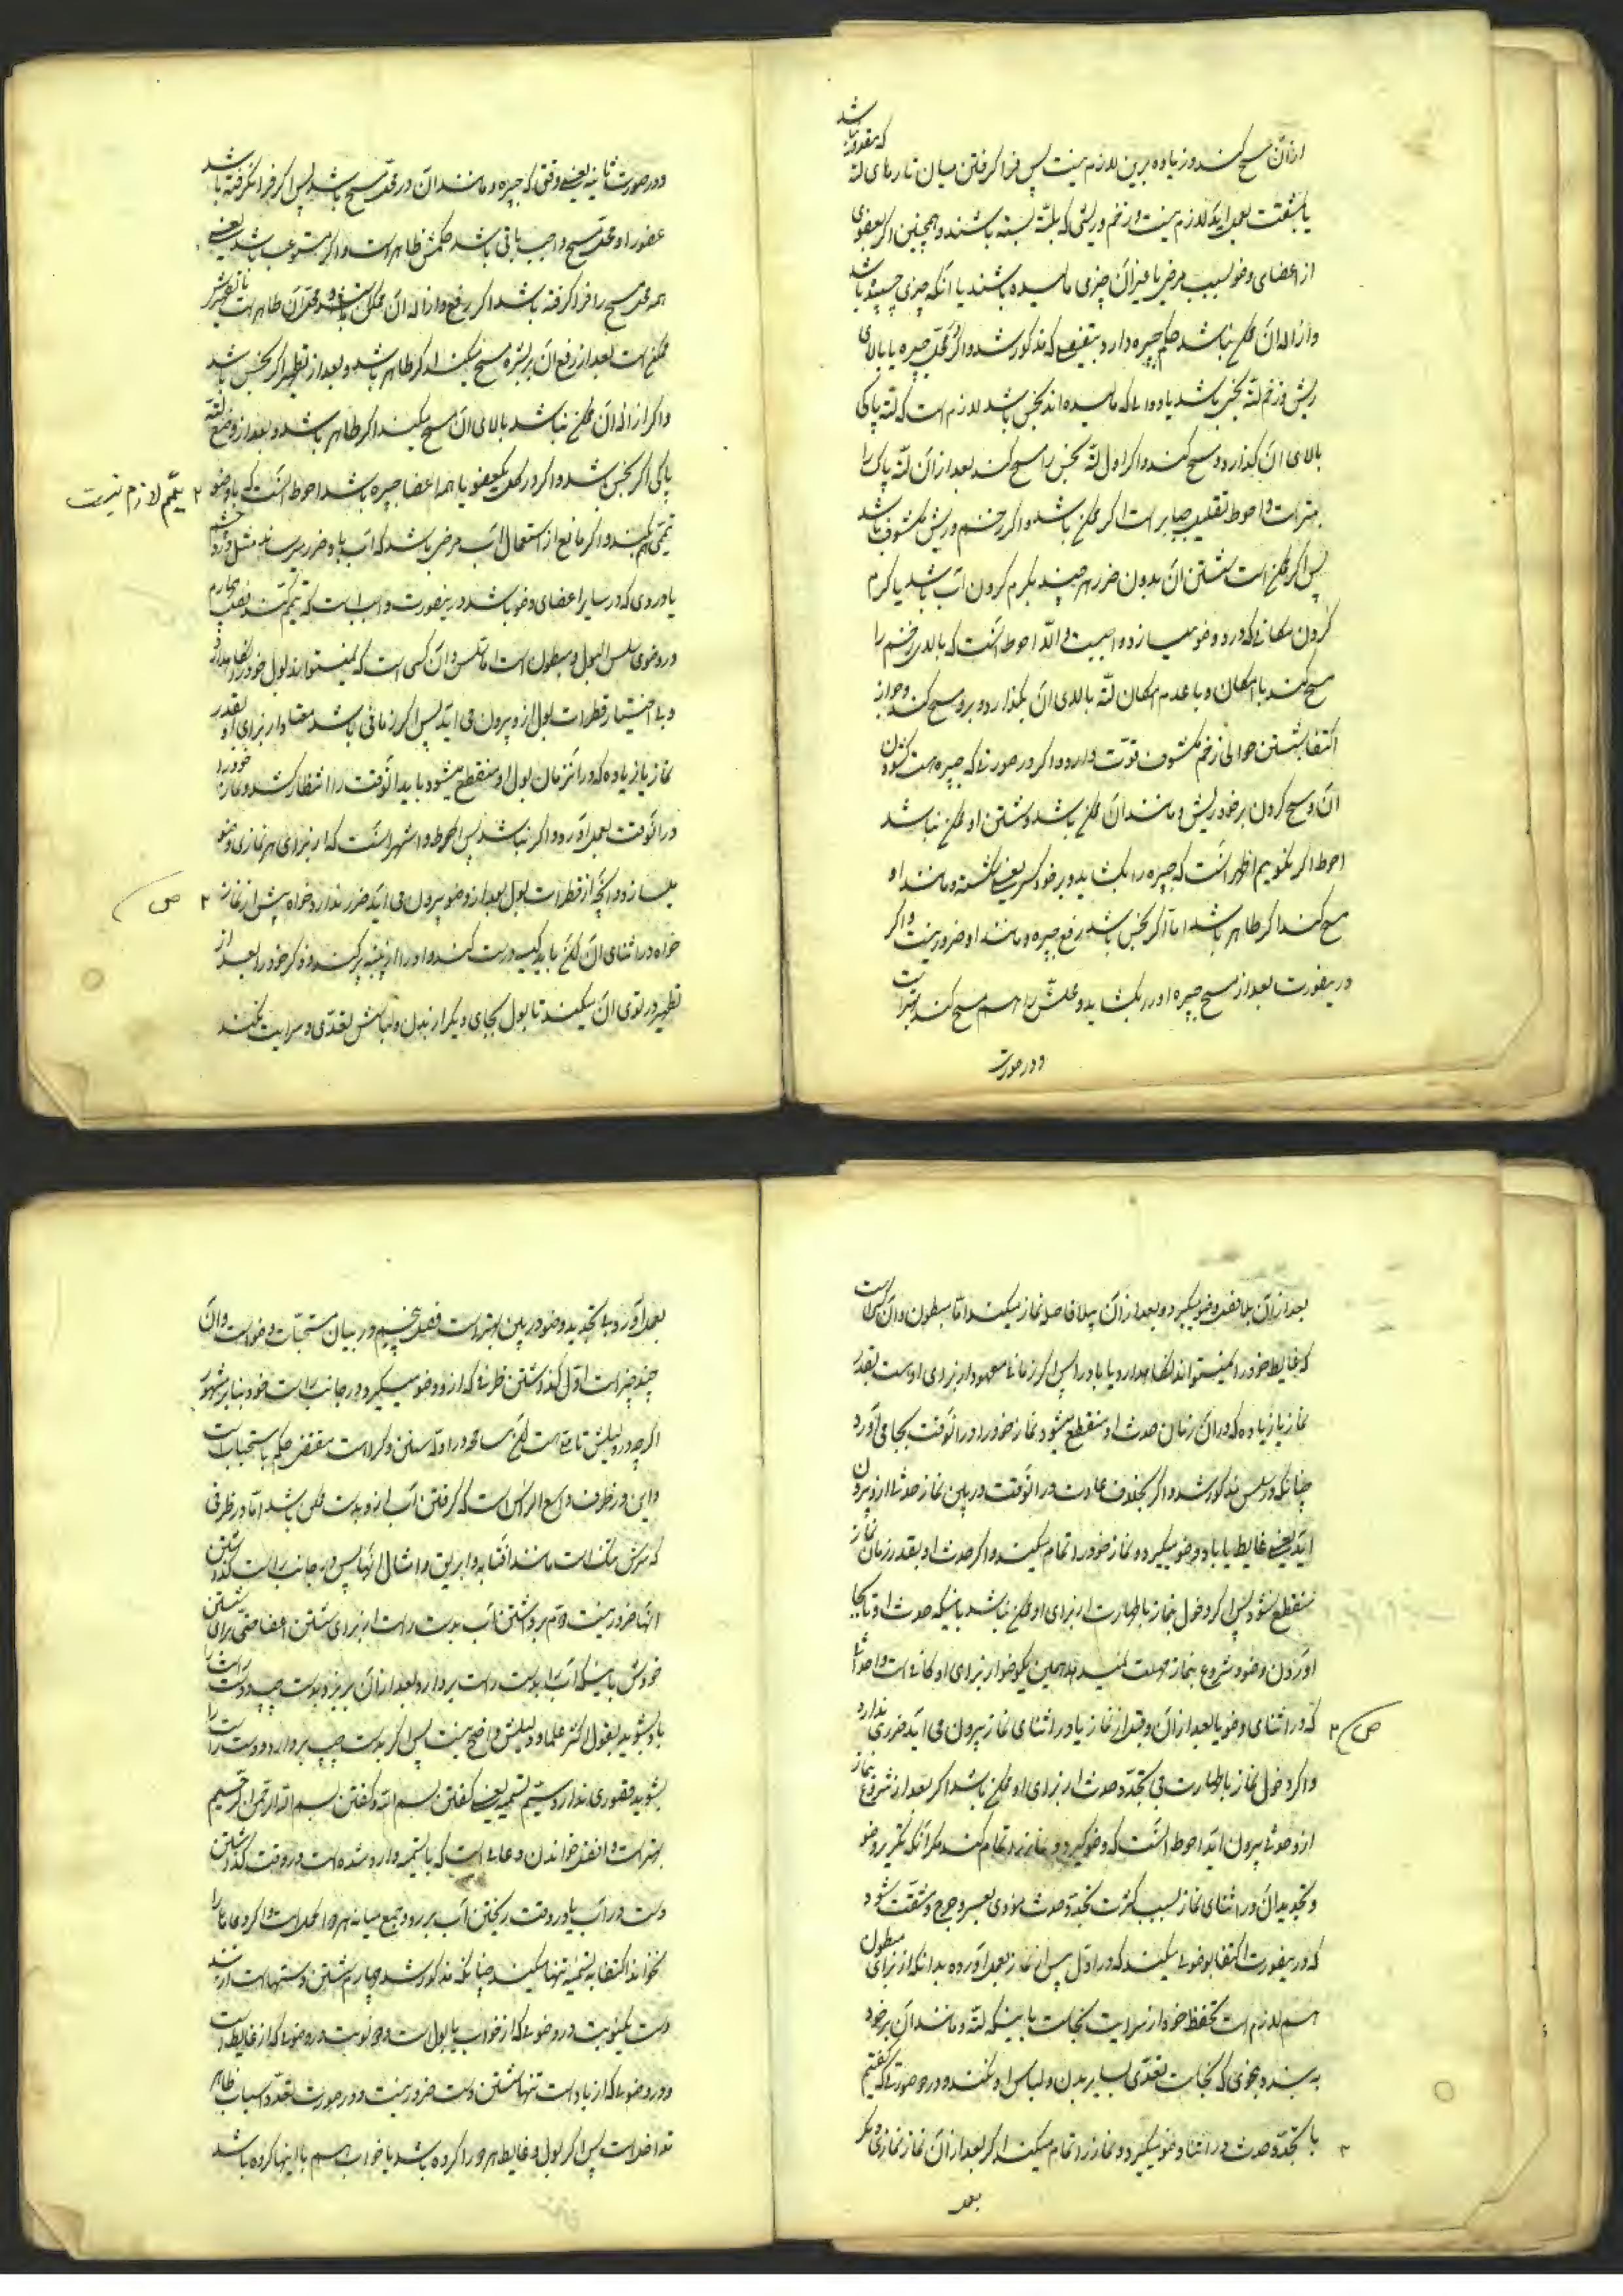 ازان مسح کند و زیاده برین لازم نیست پس فرا گرفتن میان تارهای لته که مقدور نباشد
یا بمشقت بعمل آید لازم نیست و زخم و ریشی که بلته بسته باشند و همچنین اگر بعضوی
از اعضای وضو بسبب مرض یا غیر آن چیزی مالیده باشند یا آنکه چیزی چسبیده باشد
و ازاله آن ممکن نباشد حکم جبیره دارد بتفصیلی که مذکور شد و اگر در محل جبیره یا بالای
ریش و زخم لته نجس باشد یا دوائی که مالیده اند نجس باشد لازم است که لته پاکی
بالای آن گذارد و مسح کند و اگر اول لته نجس را مسح کند بعد از آن لته پاک را
بهتر است و احوط تقلیب جبایر است اگر ممکن باشد و اگر زخم و ریش مکشوف باشد
پس اگر ممکن است شستن آن بدون ضرر هر چند بگرم کردن آب باشد یا گرم
کردن مکانی که در او وضو میسازد واجبست و الا احوط آنست که بالای زخم را
مسح کند با امکان و با عدم امکان لته بالای آن بگذارد و برو مسح کند و جواز
اکتفا بشستن حوالی زخم مکشوف قوت دارد و اگر در صورتی که جبیره هست گشودن
آن و مسح کردن بر خود ریش و مانند آن ممکن باشد و شستن او ممکن نباشد
احوط اگر نگوییم اظهر آنست که جبیره را بگشاید و بر خود کسر یعنی شکسته و مانند او
مسح کند اگر طاهر باشد اما اگر نجس باشد رفع جبیره و مانند او ضرور نیست و اگر
در ینصورت بعد از مسح جبیره او را بگشاید و محلش را هم مسح کند بهتر است
و در صورت
و در صورت ثانیه یعنی وقتی که جبیره و مانند آن در محل مسح باشد پس اگر فرا نگرفته باشد
عضو را و محل مسح واجب باقی باشد حکمش ظاهر است و اگر مستوعب باشد یعنی
همه محل مسح را فرا گرفته باشد اگر رفع و ازاله آن ممکن باشد و محل آن طاهر است یا تطهیرش
ممکن است بعد از رفع آن بر بشره مسح میکند اگر طاهر باشد و بعد از تطهیر اگر نجس باشد
و اگر ازاله آن ممکن نباشد بالای آن مسح میکند اگر طاهر باشد و بعد از وضع لته
پاکی اگر نجس باشد و اگر در کل یکعضو یا همه اعضا جبیره باشد احوط آنست که با وضو
۲ تیمم لازم نیست
تیمم هم کند و اگر مانع از استعمال آب مرض باشد که آب باو ضرر میرساند مثل درد چشم
یا دردی که در سایر اعضای وضو باشد در ینصورت واجب است که تیمم کند فصل چهارم
در وضوی سلس البول و مبطون است اما سلس و آن کسی است که نمیتواند بول خود را نگاهدارد
و بی اختیار قطرات بول ازو بیرون می آید پس اگر زمانی باشد معتاد از برای او بقدر
نماز یا زیاده که در آنزمان بول او منقطع میشود باید آنوقت را انتظار کشد و نماز خود را
در آنوقت بعمل آورد و اگر نباشد پس احوط و اشهر آنست که از برای هر نمازی وضو
بسازد و آنچه از قطرات بول بعد از وضو بیرون می آید ضرر ندارد خواه پیش از نماز
۲ ص
خواه در اثنای آن لکن باید کیسه درست کند و او را از پنبه پر کند و ذکر خود را بعد از
تطهیر در توی آن میکند تا بول بجای دیگر از بدن و لباسش تعدی و سرایت نکند
بعد از آن بلا فصل وضو میگیرد و بعد از آن بلا فاصله نماز میکند اما مبطون و آن کسی است
که غایط خود را نمیتواند نگاهدارد یا باد را پس اگر زمانی معهود از برای اوست بقدر
نماز یا زیاده که در آن زمان حدث او منقطع میشود نماز خود را در آنوقت بجا می آورد
چنانکه در سلس مذکور شد و اگر بخلاف عادت در آنوقت در بین نماز حدث از او بیرون
آید یعنی غایط یا باد وضو میگیرد و نماز خود را تمام میکند و اگر حدث او بقدر زمان نماز
منقطع نشود پس اگر دخول بنماز با طهارت از برای او ممکن نباشد باینکه حدث او تا بجا
آوردن وضو و شروع بنماز مهلت نمیدهد همین یکوضو از برای او کافی است و احداثی
که در اثنای وضو یا بعد از آن و قبل از نماز یا در اثنای نماز بیرون می آید ضرری ندارد
ص ۳
و اگر دخول نماز با طهارت بی تجدد حدث از برای او ممکن باشد اگر بعد از شروع بنماز
ازو حدثی بیرون آید احوط آنست که وضو گیرد و نماز را تمام کند مگر آنکه تکریر وضو
و تجدید آن در اثنای نماز بسبب کثرت تجدد حدث مؤدی بعسر و حرج و مشقت شود
که در ینصورت اکتفا بوضوئی میکند که در اول پیش از نماز بعمل آورده بدانکه از برای مبطون
هم لازم است تحفظ خود از سرایت نجاست باینکه لته و مانند آن بر خود
ببندد بنحوی که نجاست تعدی بسایر بدن و لباس او نکند و در صورتی که گفتیم
با تجدد حدث در اثنا وضو میگیرد و نماز را تمام میکند اگر بعد از آن نماز نمازی دیگر
۳
بعمل
بعمل آورد بی تجدید وضو در بین بهتر است فصل پنجم در بیان مستحبات وضو است و آن
چند چیز است اول گذاشتن ظرفی که ازو وضو میگیرد در جانب راست خود بنابر مشهور
اگر چه در دلیلش تأملی است لکن مسامحه در ادله سنن و کراهت مقتضی حکم باستحباب است
و این در ظرف واسع الراس است که گرفتن آب ازو بدست ممکن باشد اما در ظرفی
که سرش تنگ است مانند آفتابه و ابریق و امثال اینها پس در جانب راست گذاشتن
آنها ضرور نیست دوم برداشتن آب بدست راست از برای شستن اعضا حتی برای شستن
خودش باینکه آب را بدست راست بردارد و بعد از آن بریزد بدست چپ و دست راست را
باو بشوید بقول اکثر علما و دلیلش واضح نیست پس اگر بدست چپ بردارد و دست راست را
بشوید قصوری ندارد سیم تسمیه یعنی گفتن بسم الله و گفتن بسم الله الرحمن الرحیم
بهتر است و افضل خواندن دعائی است که با تسمیه وارد شده است در وقت گذاشتن
دست در آب یا در وقت ریختن آب بر رو و جمع میانه هر دو اکمل است و اگر دعا را
نخواند اکتفا به تسمیه تنها میکند چنانکه مذکور شد چهارم شستن دستهاست از بند
دست یکنوبت در وضوئی که از خواب یا بول است و دو نوبت در وضوئی که از غایط است
و در وضوئی که از باد است تنها شستن دست ضرور نیست و در صورت تعدد اسباب ظاهر
تداخل است پس اگر بول و غایط هر دو را کرده باشد یا خواب هم با اینها کرده باشد